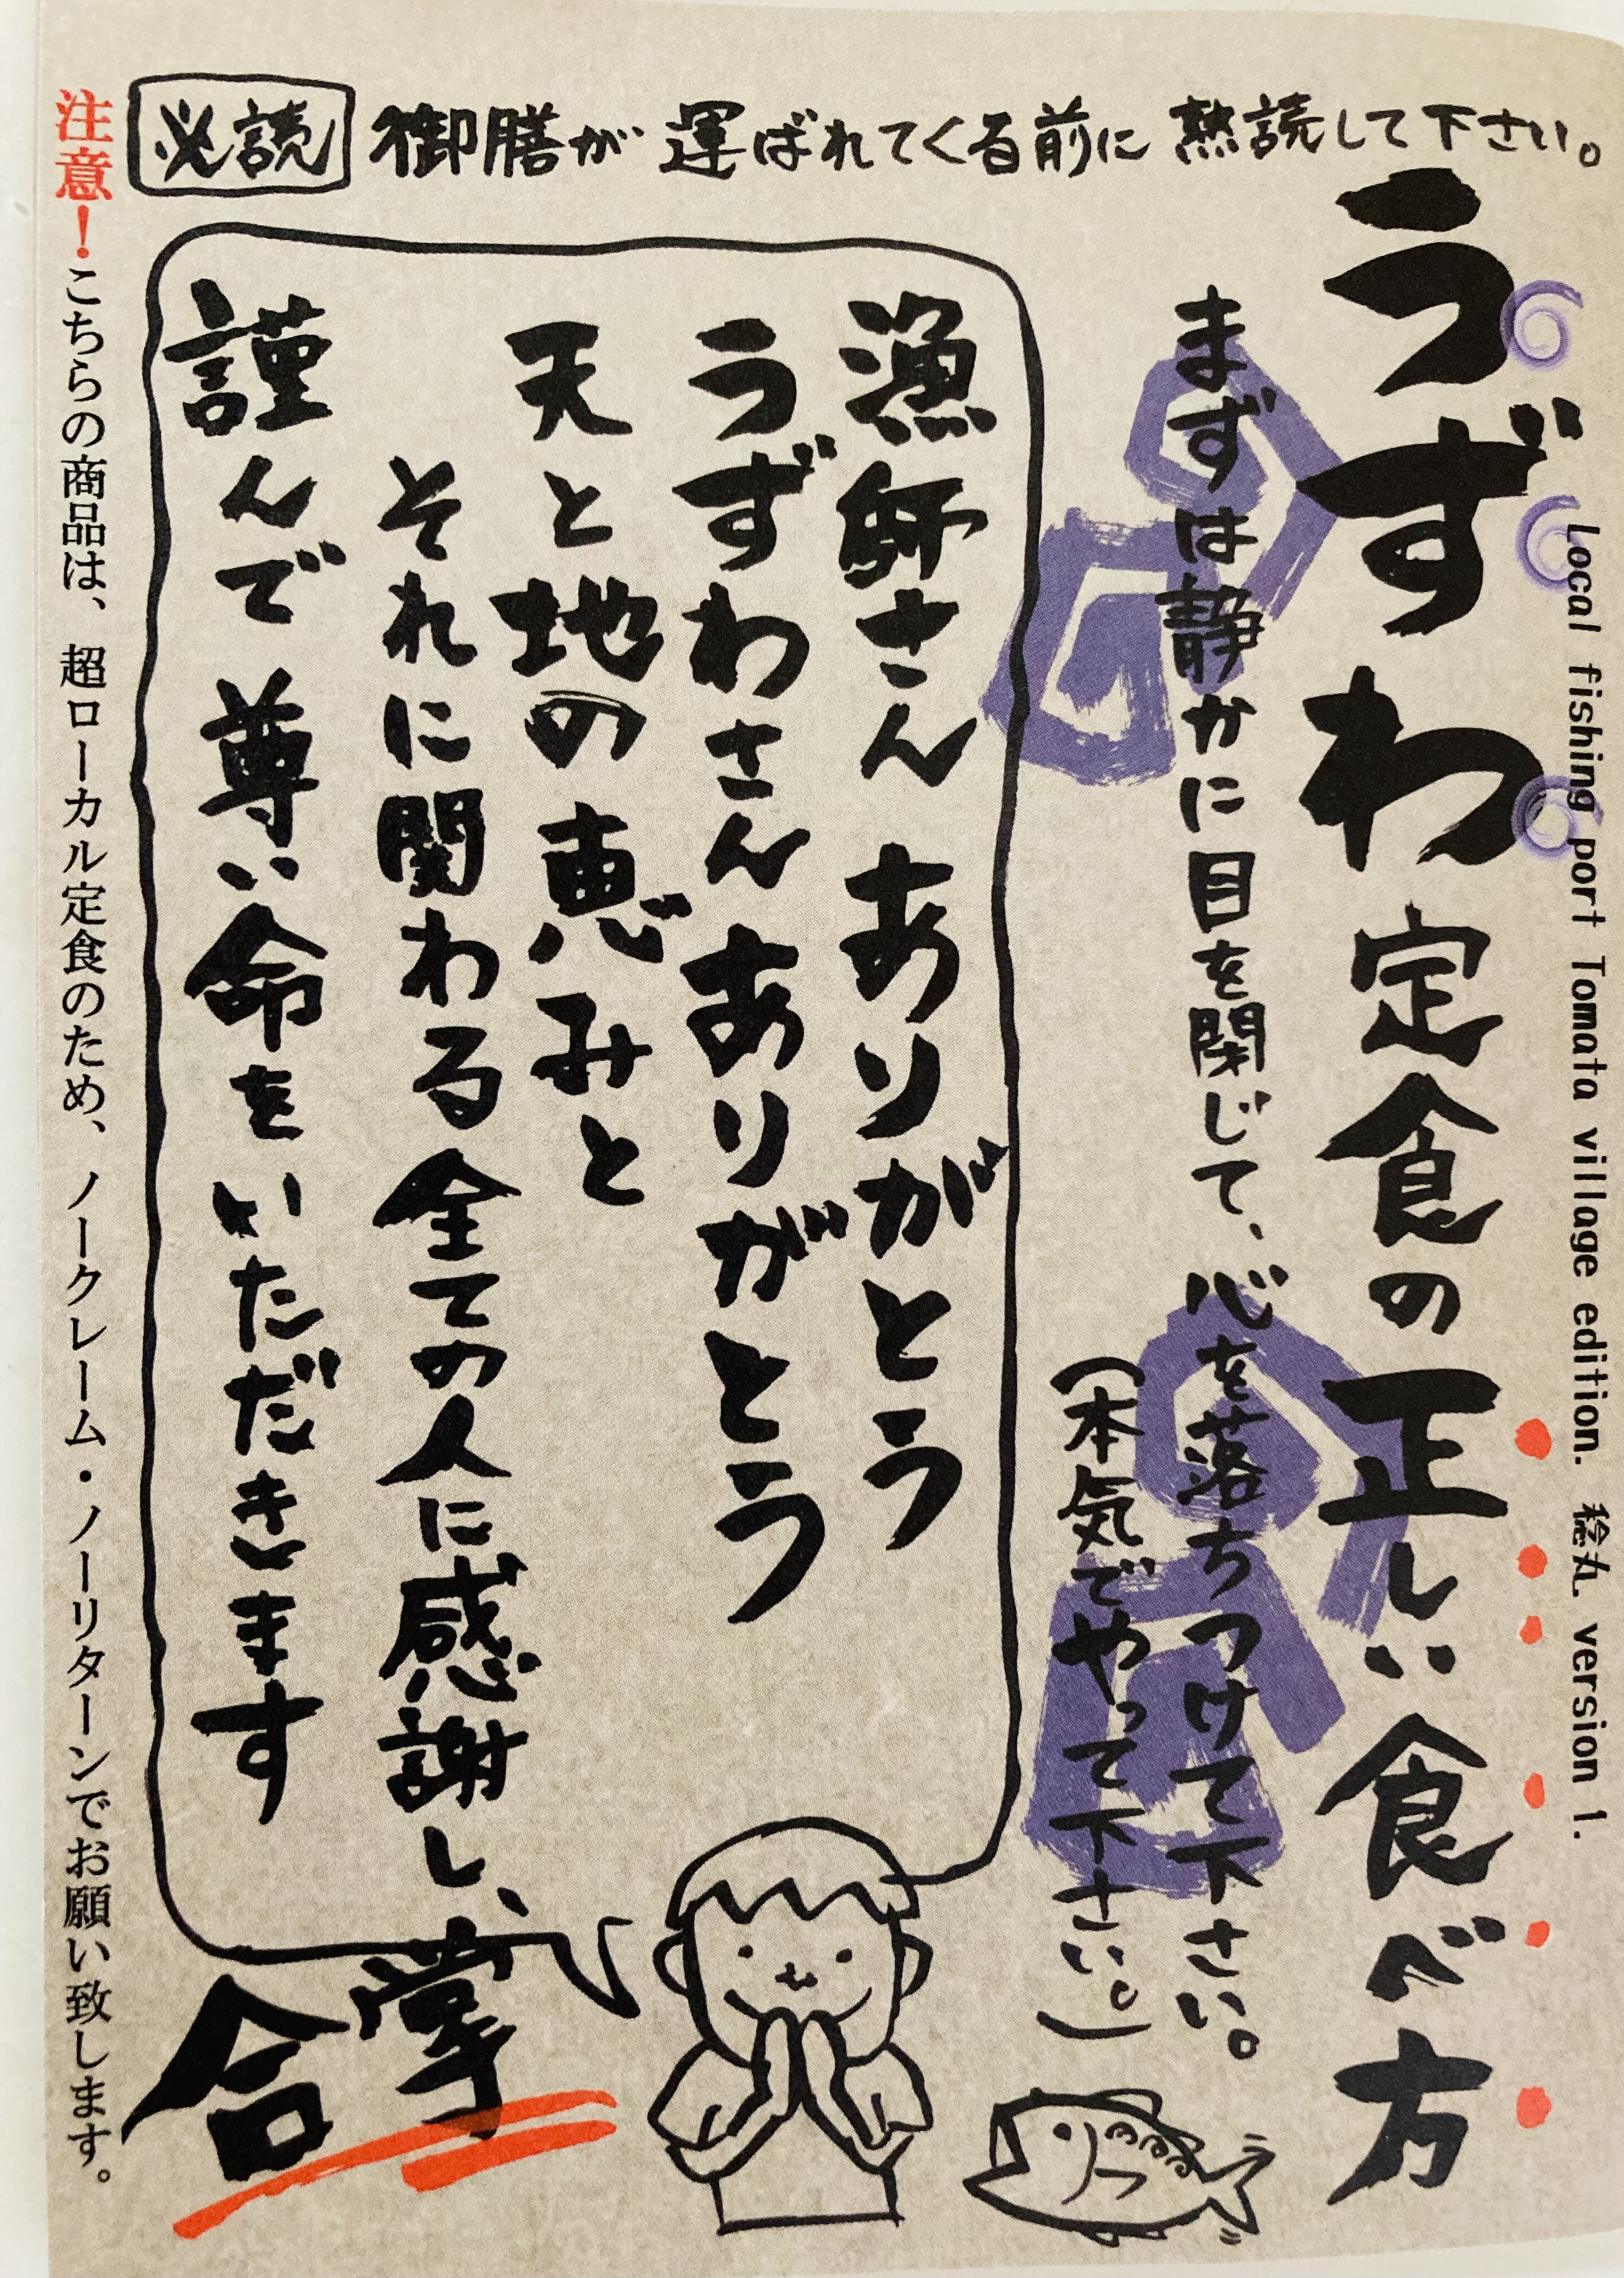 必読 御膳が運ばれてくる前に熟読して下さい。
Local fishing port Tomata village edition. 稔丸 version 1.
うずわ定食の正しい食べ方
まずは静かに目を閉じて、心を落ちつけて下さい。
(本気でやって下さい。)
漁師さんありがとう
うずわさんありがとう
天と地の恵みと
それに関わる全ての人に感謝し、
謹んで尊い命をいただきます
合掌
注意！こちらの商品は、超ローカル定食のため、ノークレーム・ノーリターンでお願い致します。